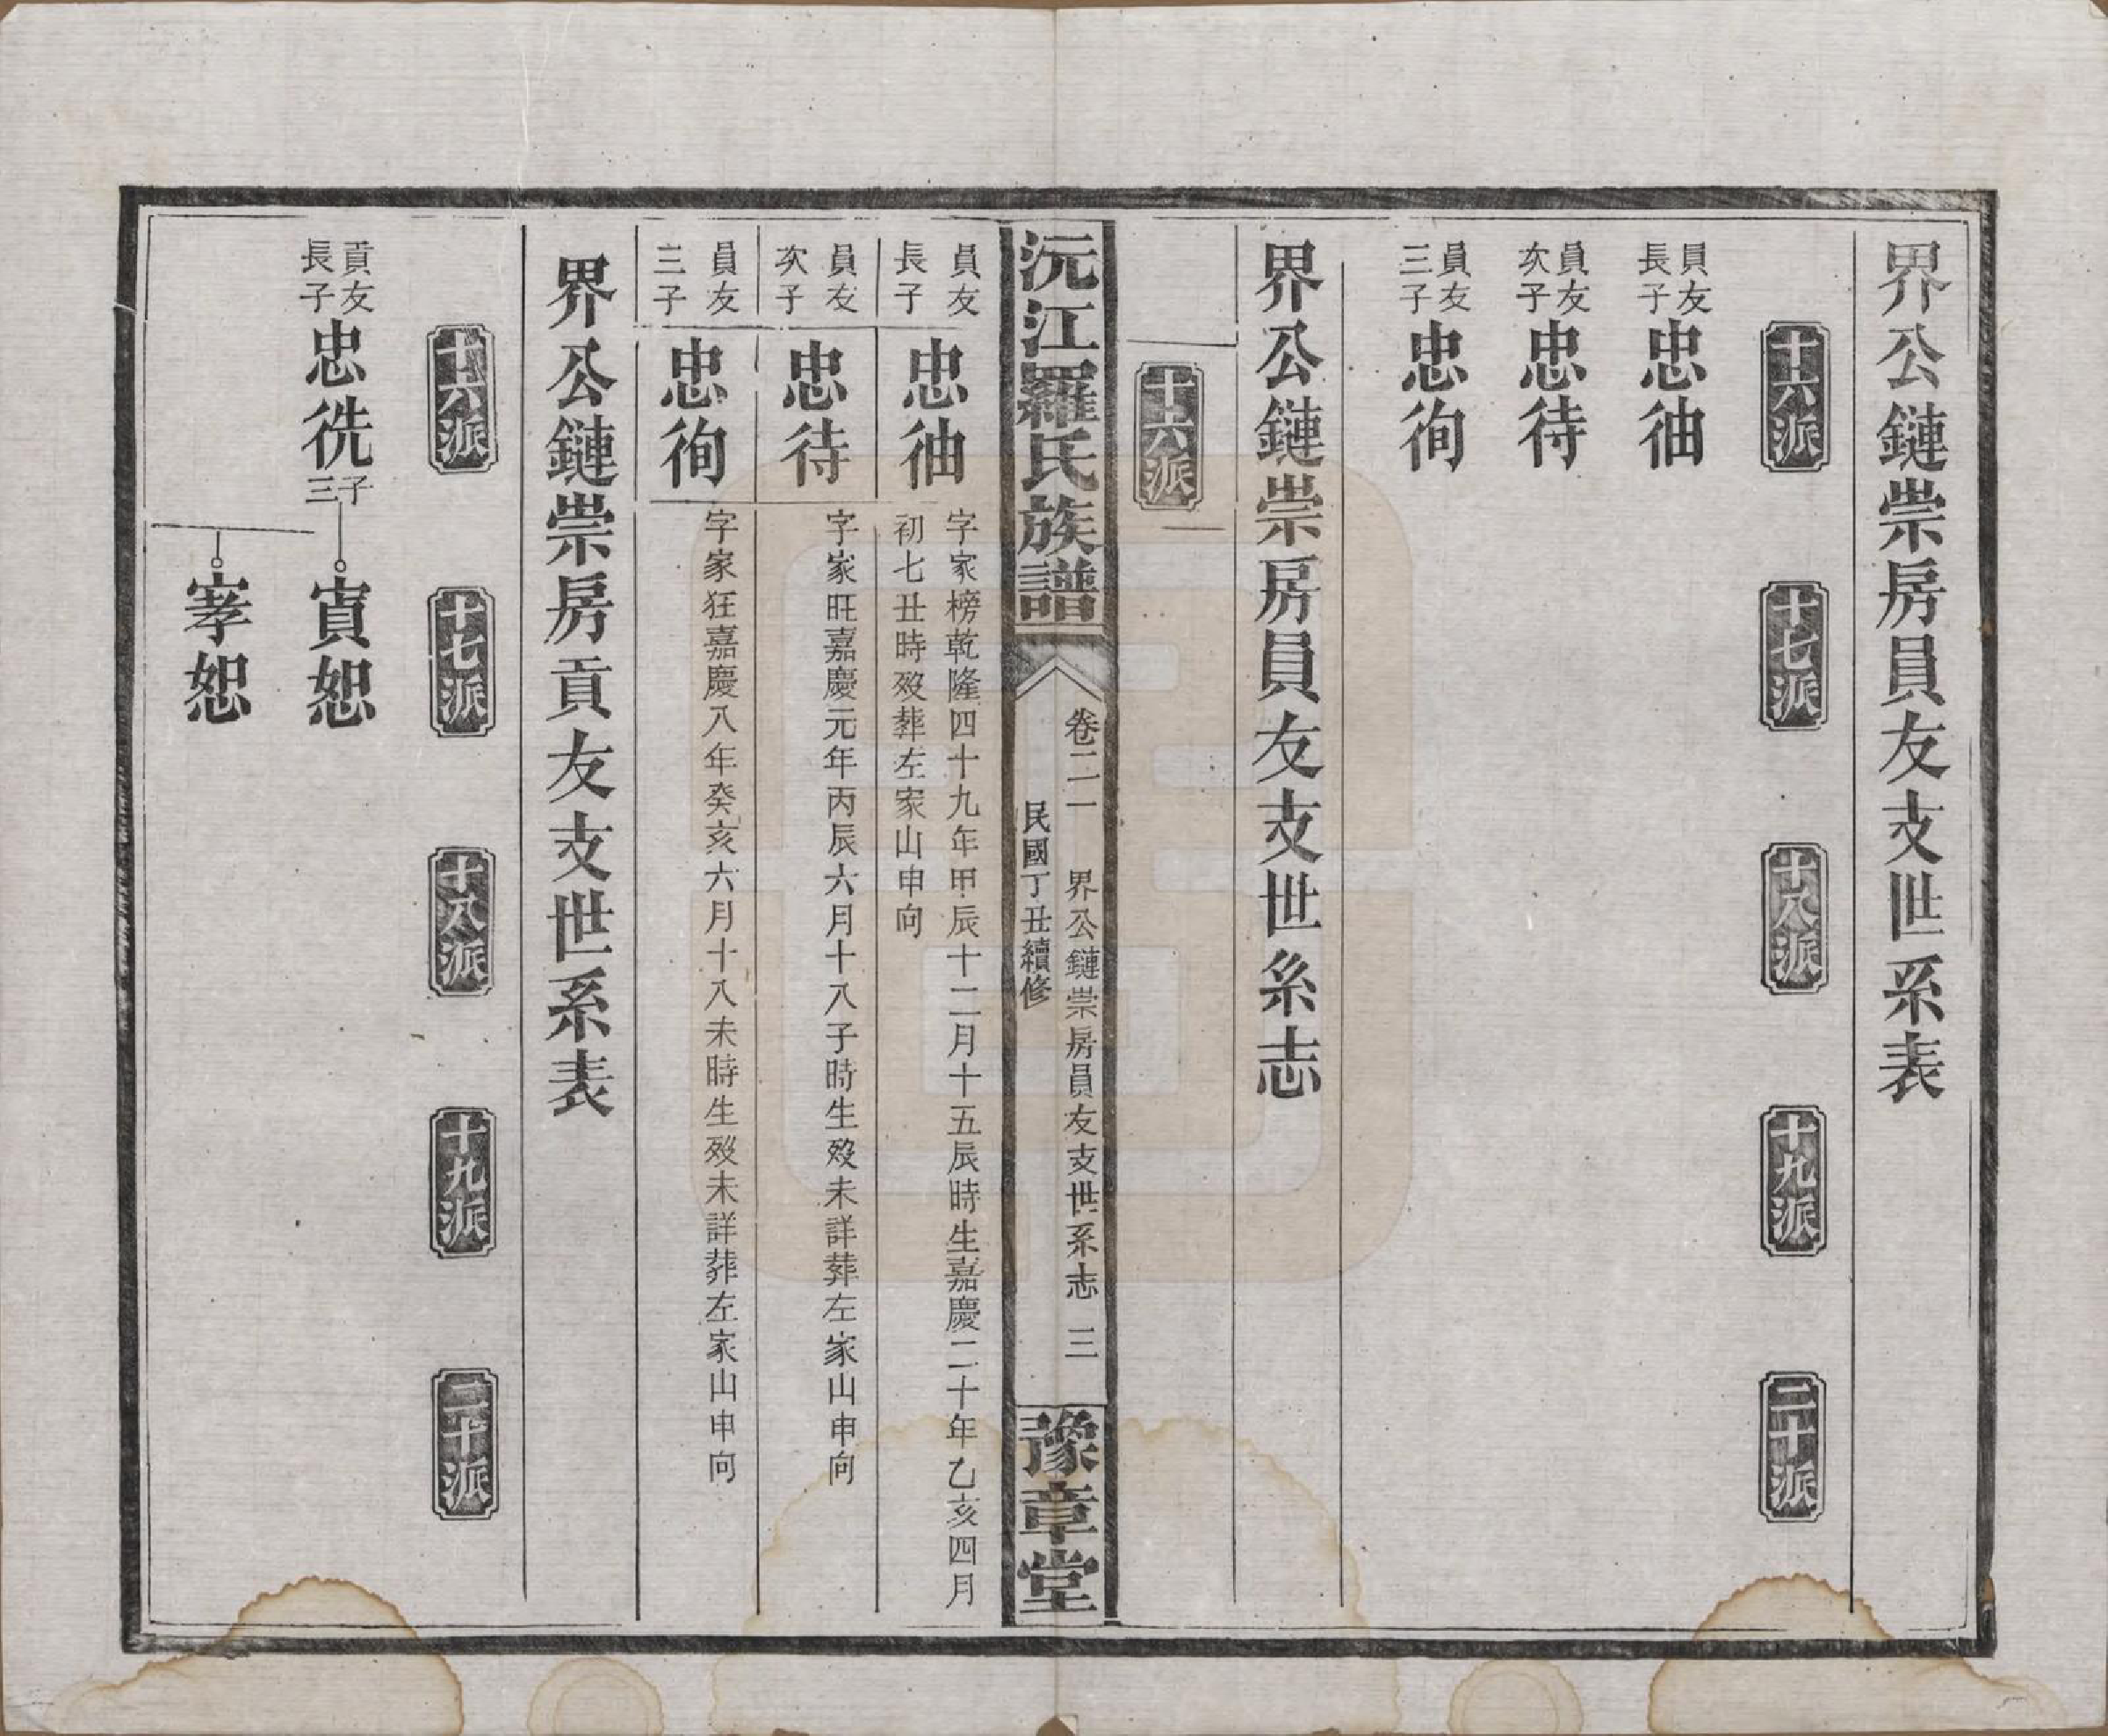 界公鏈崇房員友支世系表
十六派
十七派
十八派
十九派
二十派
員友長子忠㣙
員友次子忠待
員友三子忠徇
界公鏈崇房員友支世系志
十六派
沅江羅氏族譜
卷二一 界公鏈崇房員友支世系志 三
民國丁丑續修
豫章堂
員友長子
忠㣙
字家榜乾隆四十九年甲辰十二月十五辰時生嘉慶二十年乙亥四月
初七丑時歿葬左家山申向
員友次子
忠待
字家旺嘉慶元年丙辰六月十八子時生歿未詳葬左家山申向
員友三子
忠徇
字家狂嘉慶八年癸亥六月十八未時生歿未詳葬左家山申向
界公鏈崇房貢友支世系表
十六派
十七派
十八派
十九派
二十派
貢友長子忠㣫子三
寊恕
宯恕